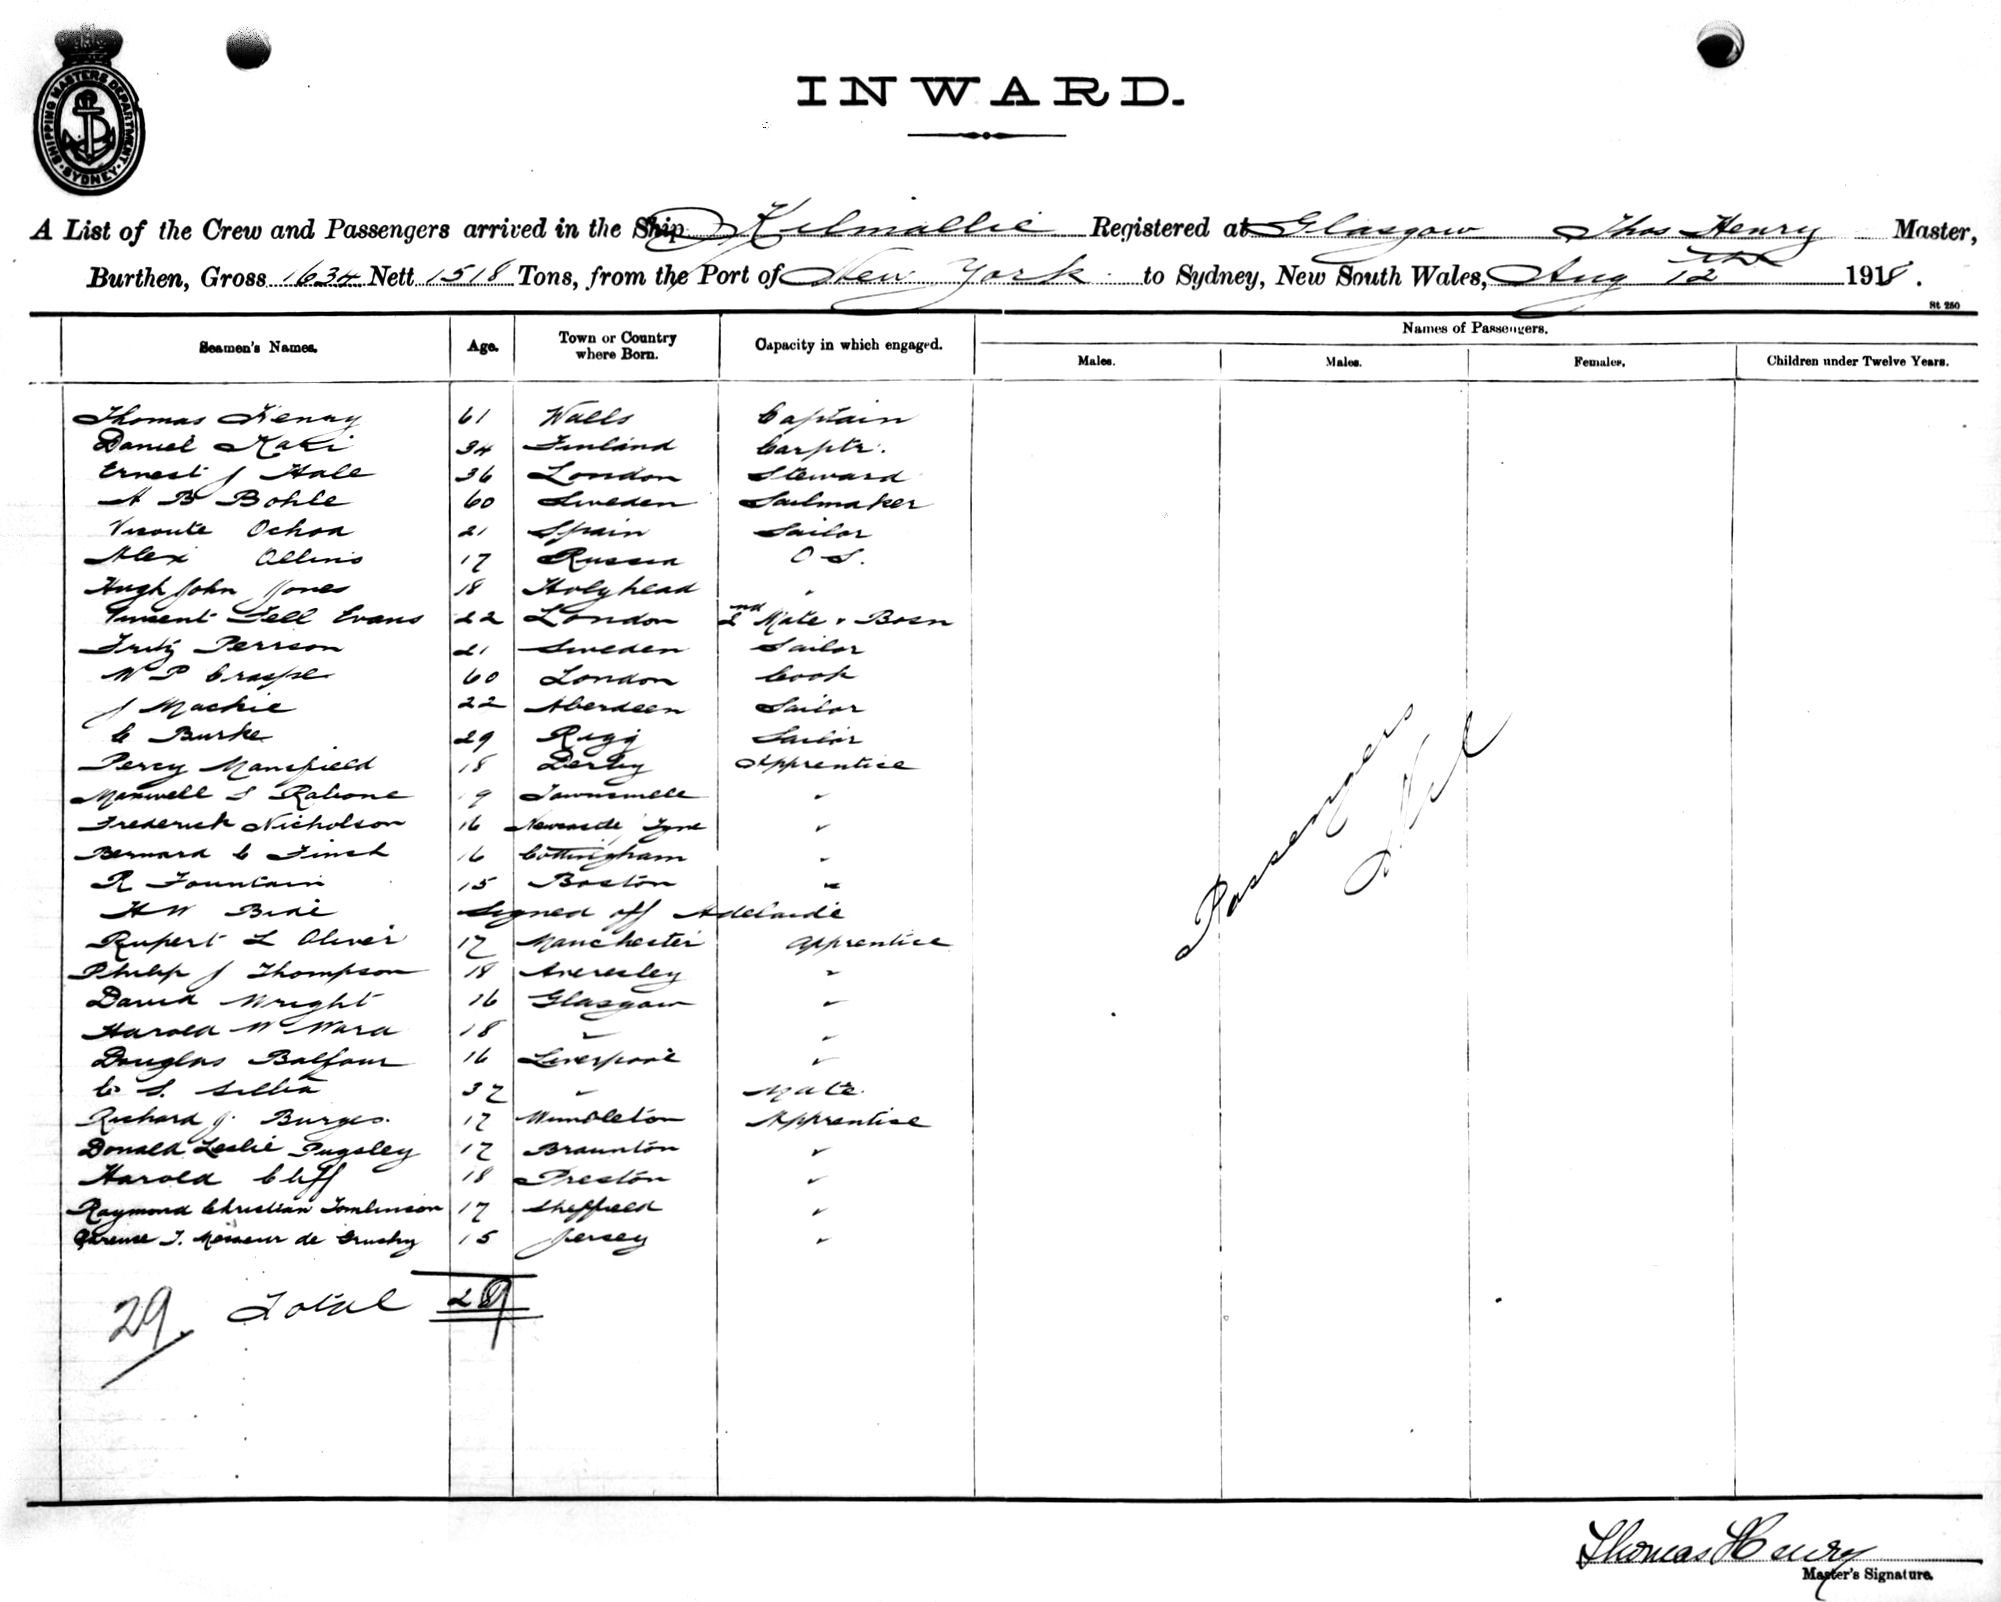 SHIPPING MASTERS DEPARTMENT
SYDNEY
INWARD.
A List of the Crew and Passengers arrived in the Ship Kilmallie Registered at Glasgow Thos Henry Master,
Burthen, Gross 1634 Nett 1518 Tons, from the Port of New York to Sydney, New South Wales, Aug 12th 1918.
St 250
Seamen's Names. Age. Town or Country where Born. Capacity in which engaged. Names of Passengers.
Males. Males. Females. Children under Twelve Years.
Thomas Henry 61 Walls Captain
Daniel 34 Finland Carptr.
Ernest J Hale 36 London Steward
A B Bohle 60 Sweden Sailmaker
Ochoa 21 Spain Sailor
Alex Ollins 17 Russia O S.
Hugh John Jones 18 Holyhead "
Vincent Fell Evans 22 London 2nd Mate & Bosn
Fritz Persson 21 Sweden Sailor
W P 60 London Cook
J Mackie 22 Aberdeen Sailor
C Burke 29 Sailor
Percy Mansfield 18 Derby Apprentice
Maxwell S 19 Townsville "
Frederick Nicholson 16 Newcastle Tyne "
Bernard C Finch 16 Cottingham "
R Fountain 15 Boston "
H W Signed off Adelaide
Rupert L Oliver 17 Manchester Apprentice
Philip J Thompson 18 "
David Wright 16 Glasgow "
Harold W Ward 18 " "
Douglas Balfour 16 Liverpool "
C S. 37 " Mate.
Richard J. Burges. 17 Wimbleton Apprentice
Donald Leslie Pugsley 17 Braunton "
Harold Cliff 18 Preston "
Raymond Christian Tomlinson 17 Sheffield "
T. de Gruchy 15 Jersey "
29 Total 29
Passengers
Nil
Thomas Henry
Master's Signature.